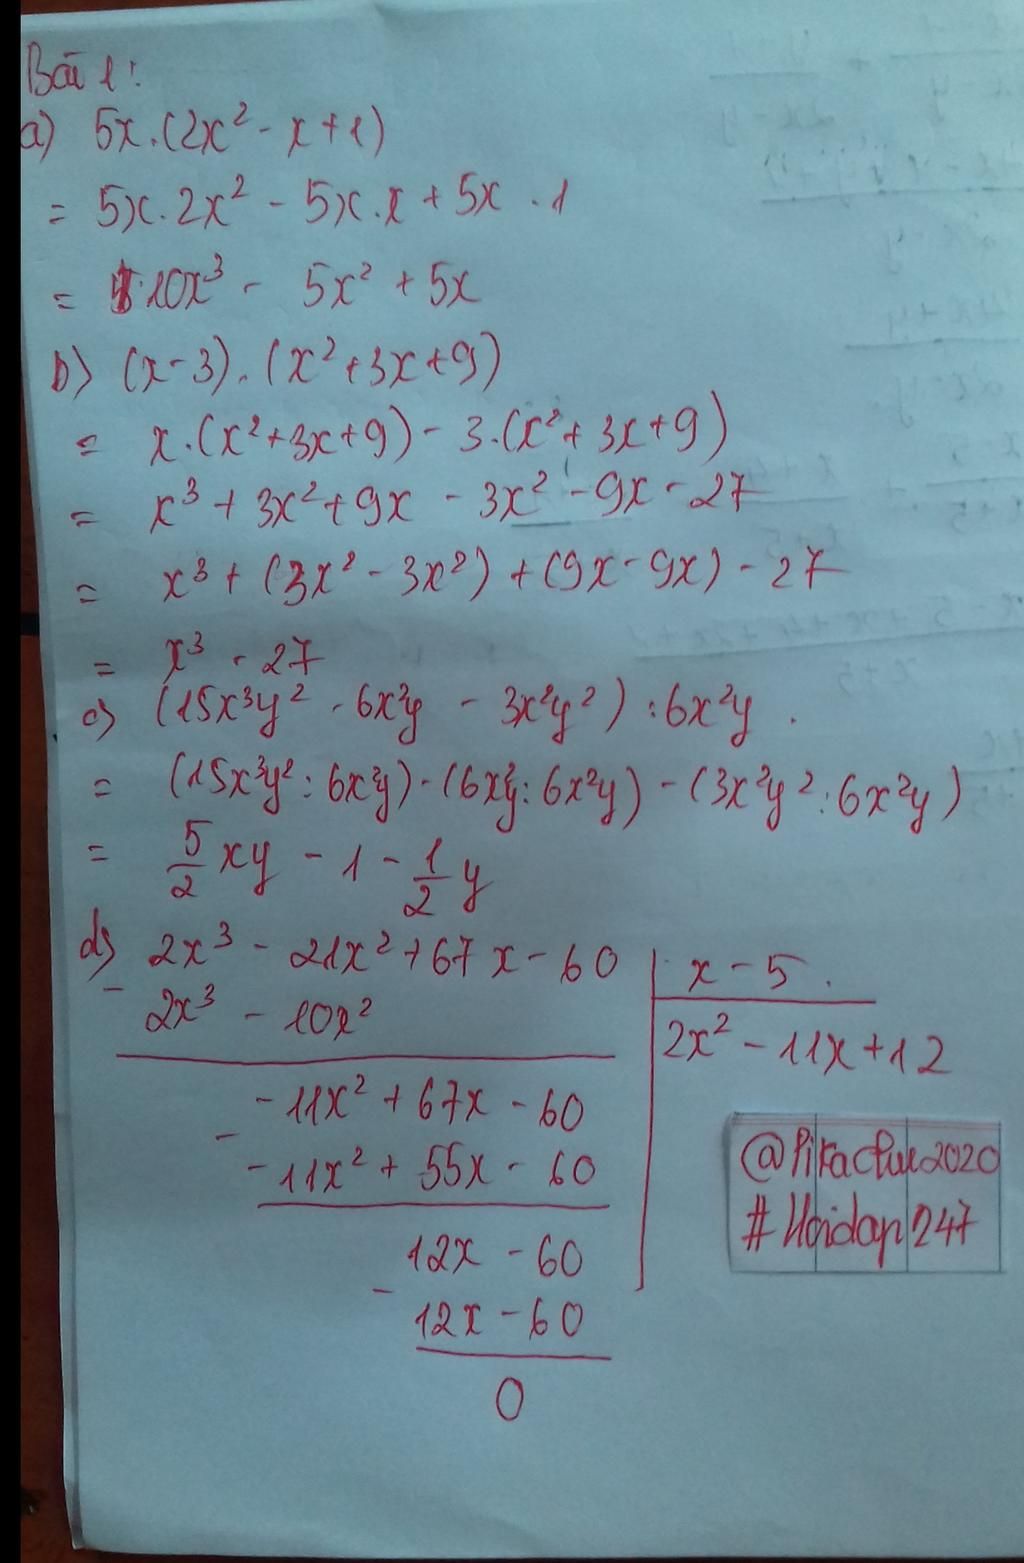 Bài 1:
a) 5x.(2x² - x + 1)
= 5x.2x² - 5x.x + 5x.1
= 10x³ - 5x² + 5x
b) (x-3).(x²+3x+9)
= x.(x²+3x+9) - 3.(x²+3x+9)
= x³ + 3x² + 9x - 3x² - 9x - 27
= x³ + (3x² - 3x²) + (9x - 9x) - 27
= x³ - 27
c) (15x³y² - 6x²y - 3x²y²) : 6x²y.
= (15x³y² : 6x²y) - (6x²y : 6x²y) - (3x²y² : 6x²y)
= 5/2 xy - 1 - 1/2 y
d) 2x³ - 21x² + 67x - 60 | x - 5.
- 2x³ - 10x² | 2x² - 11x + 12
-11x² + 67x - 60
- -11x² + 55x - 60
12x - 60
- 12x - 60
0
@Pikachue2020
#Hoidap247